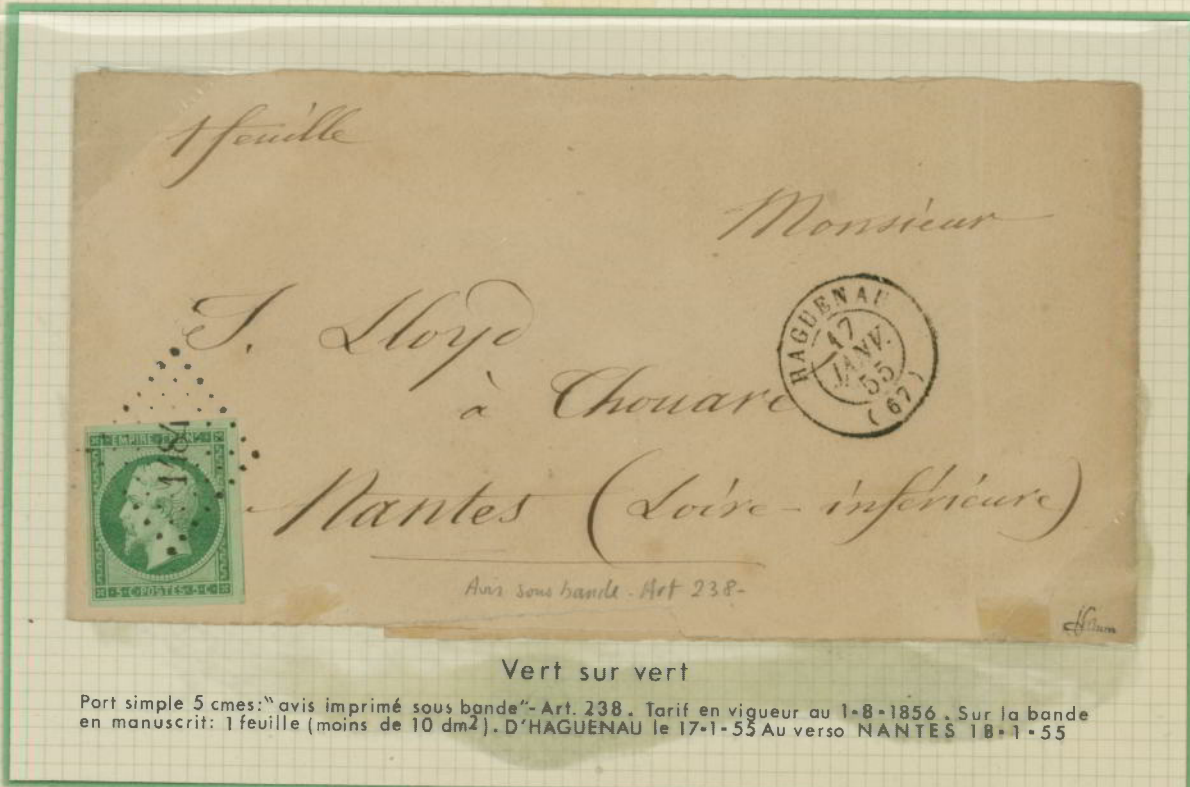 1 feuille
Monsieur
J. Lloyd
HAGUENAU
17
JANV.
55
(67)
à Chouare
1484
EMPIRE FRANC
5·C·POSTES·5·C
Nantes (Loire-inférieure)
Avis sous bande. Art 238-
Vert sur vert
Port simple 5 cmes:“avis imprimé sous bande”-Art. 238. Tarif en vigueur au 1-8-1856. Sur la bande
en manuscrit: 1 feuille (moins de 10 dm2). D'HAGUENAU le 17-1-55 Au verso NANTES 18-1-55